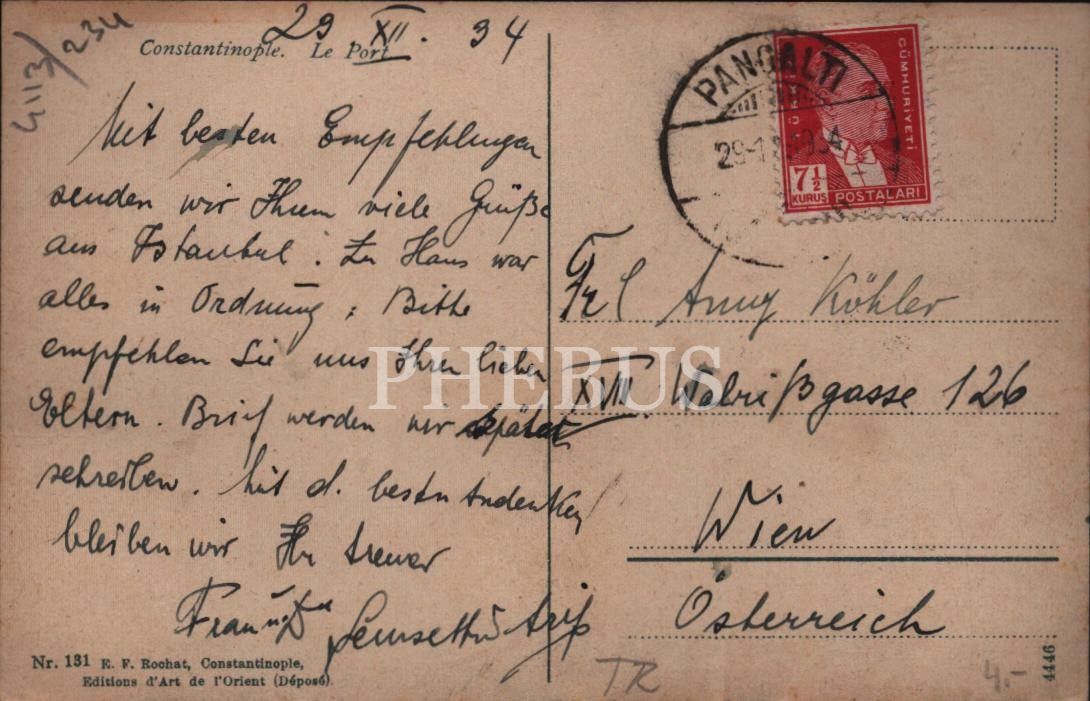 4113/234
29 XII. 34
Constantinople. Le Port
Mit besten Empfehlungen
senden wir Ihnen viele Grüße
aus Istanbul. Zu Haus war
alles in Ordnung. Bitte
empfehlen Sie uns Ihren lieben
Eltern. Brief werden wir später
schreiben. Mit d. besten Andenken
bleiben wir Ihr treuer
Frau
Nr. 131 E. F. Rochat, Constantinople,
Editions d'Art de l'Orient (Déposé)
PANGALTI
CÜMHURİYETİ
7½
KURUŞ POSTALARI
Frl Anny Köhler
XVII. Wabrißgasse 126
Wien
Österreich
TR
4.-
4446
PHEBUS